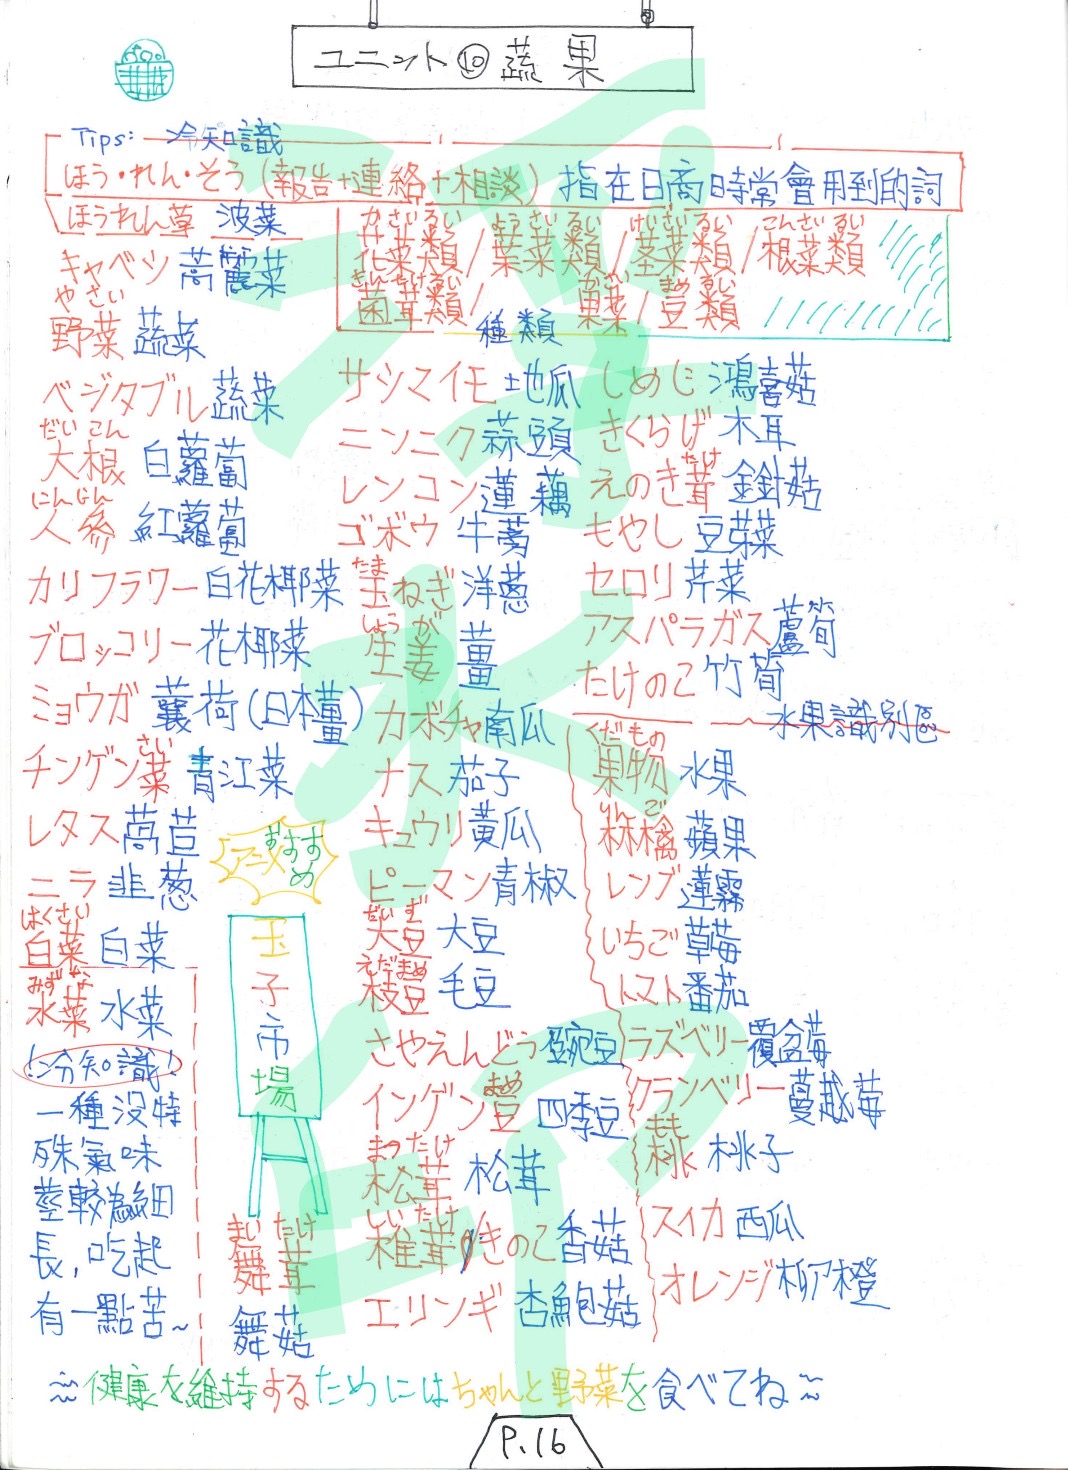 ユニット⑩蔬果
Tips: 冷知識
ほう・れん・そう(報告+連絡+相談) 指在日商時常會用到的詞
ほうれん草 波菜
かさいるい ようさいるい けいさいるい こんさいるい
花菜類/葉菜類/茎菜類/根菜類
きんたけるい かさい まめるい
菌茸類/果菜/豆類
種類
キャベツ 高麗菜
やさい
野菜 蔬菜
ベジタブル 蔬菜
だいこん
大根 白蘿蔔
にんじん
人参 紅蘿蔔
カリフラワー 白花椰菜
ブロッコリー 花椰菜
ミョウガ 蘘荷(日本薑)
さい
チンゲン菜 青江菜
レタス 萵苣
ニラ 韭葱
はくさい
白菜 白菜
みずな
水菜 水菜
!冷知識!
一種没特
殊氣味
莖較為細
長,吃起
有一點苦~
おすすめ
アニメ
玉子市場
まいたけ
舞茸
舞菇
サツマイモ 地瓜
ニンニク 蒜頭
レンコン 蓮藕
ゴボウ 牛蒡
たま
玉ねぎ 洋蔥
しょうが
生姜 薑
カボチャ 南瓜
ナス 茄子
キュウリ 黃瓜
ピーマン 青椒
だいず
大豆 大豆
えだまめ
枝豆 毛豆
さやえんどう 豌豆
まめ
インゲン豆 四季豆
まつたけ
松茸 松茸
しいたけ
椎茸/きのこ 香菇
エリンギ 杏鮑菇
しめじ 鴻喜菇
きくらげ 木耳
たけ
えのき茸 金針菇
もやし 豆芽菜
セロリ 芹菜
アスパラガス 蘆筍
たけのこ 竹筍
水果識別區
くだもの
果物 水果
りんご
林檎 蘋果
レンブ 蓮霧
いちご 草莓
トマト 番茄
ラズベリー 覆盆莓
クランベリー 蔓越莓
もも
桃 桃子
スイカ 西瓜
オレンジ 柳橙
~健康を維持するためにはちゃんと野菜を食べてね~
P.16